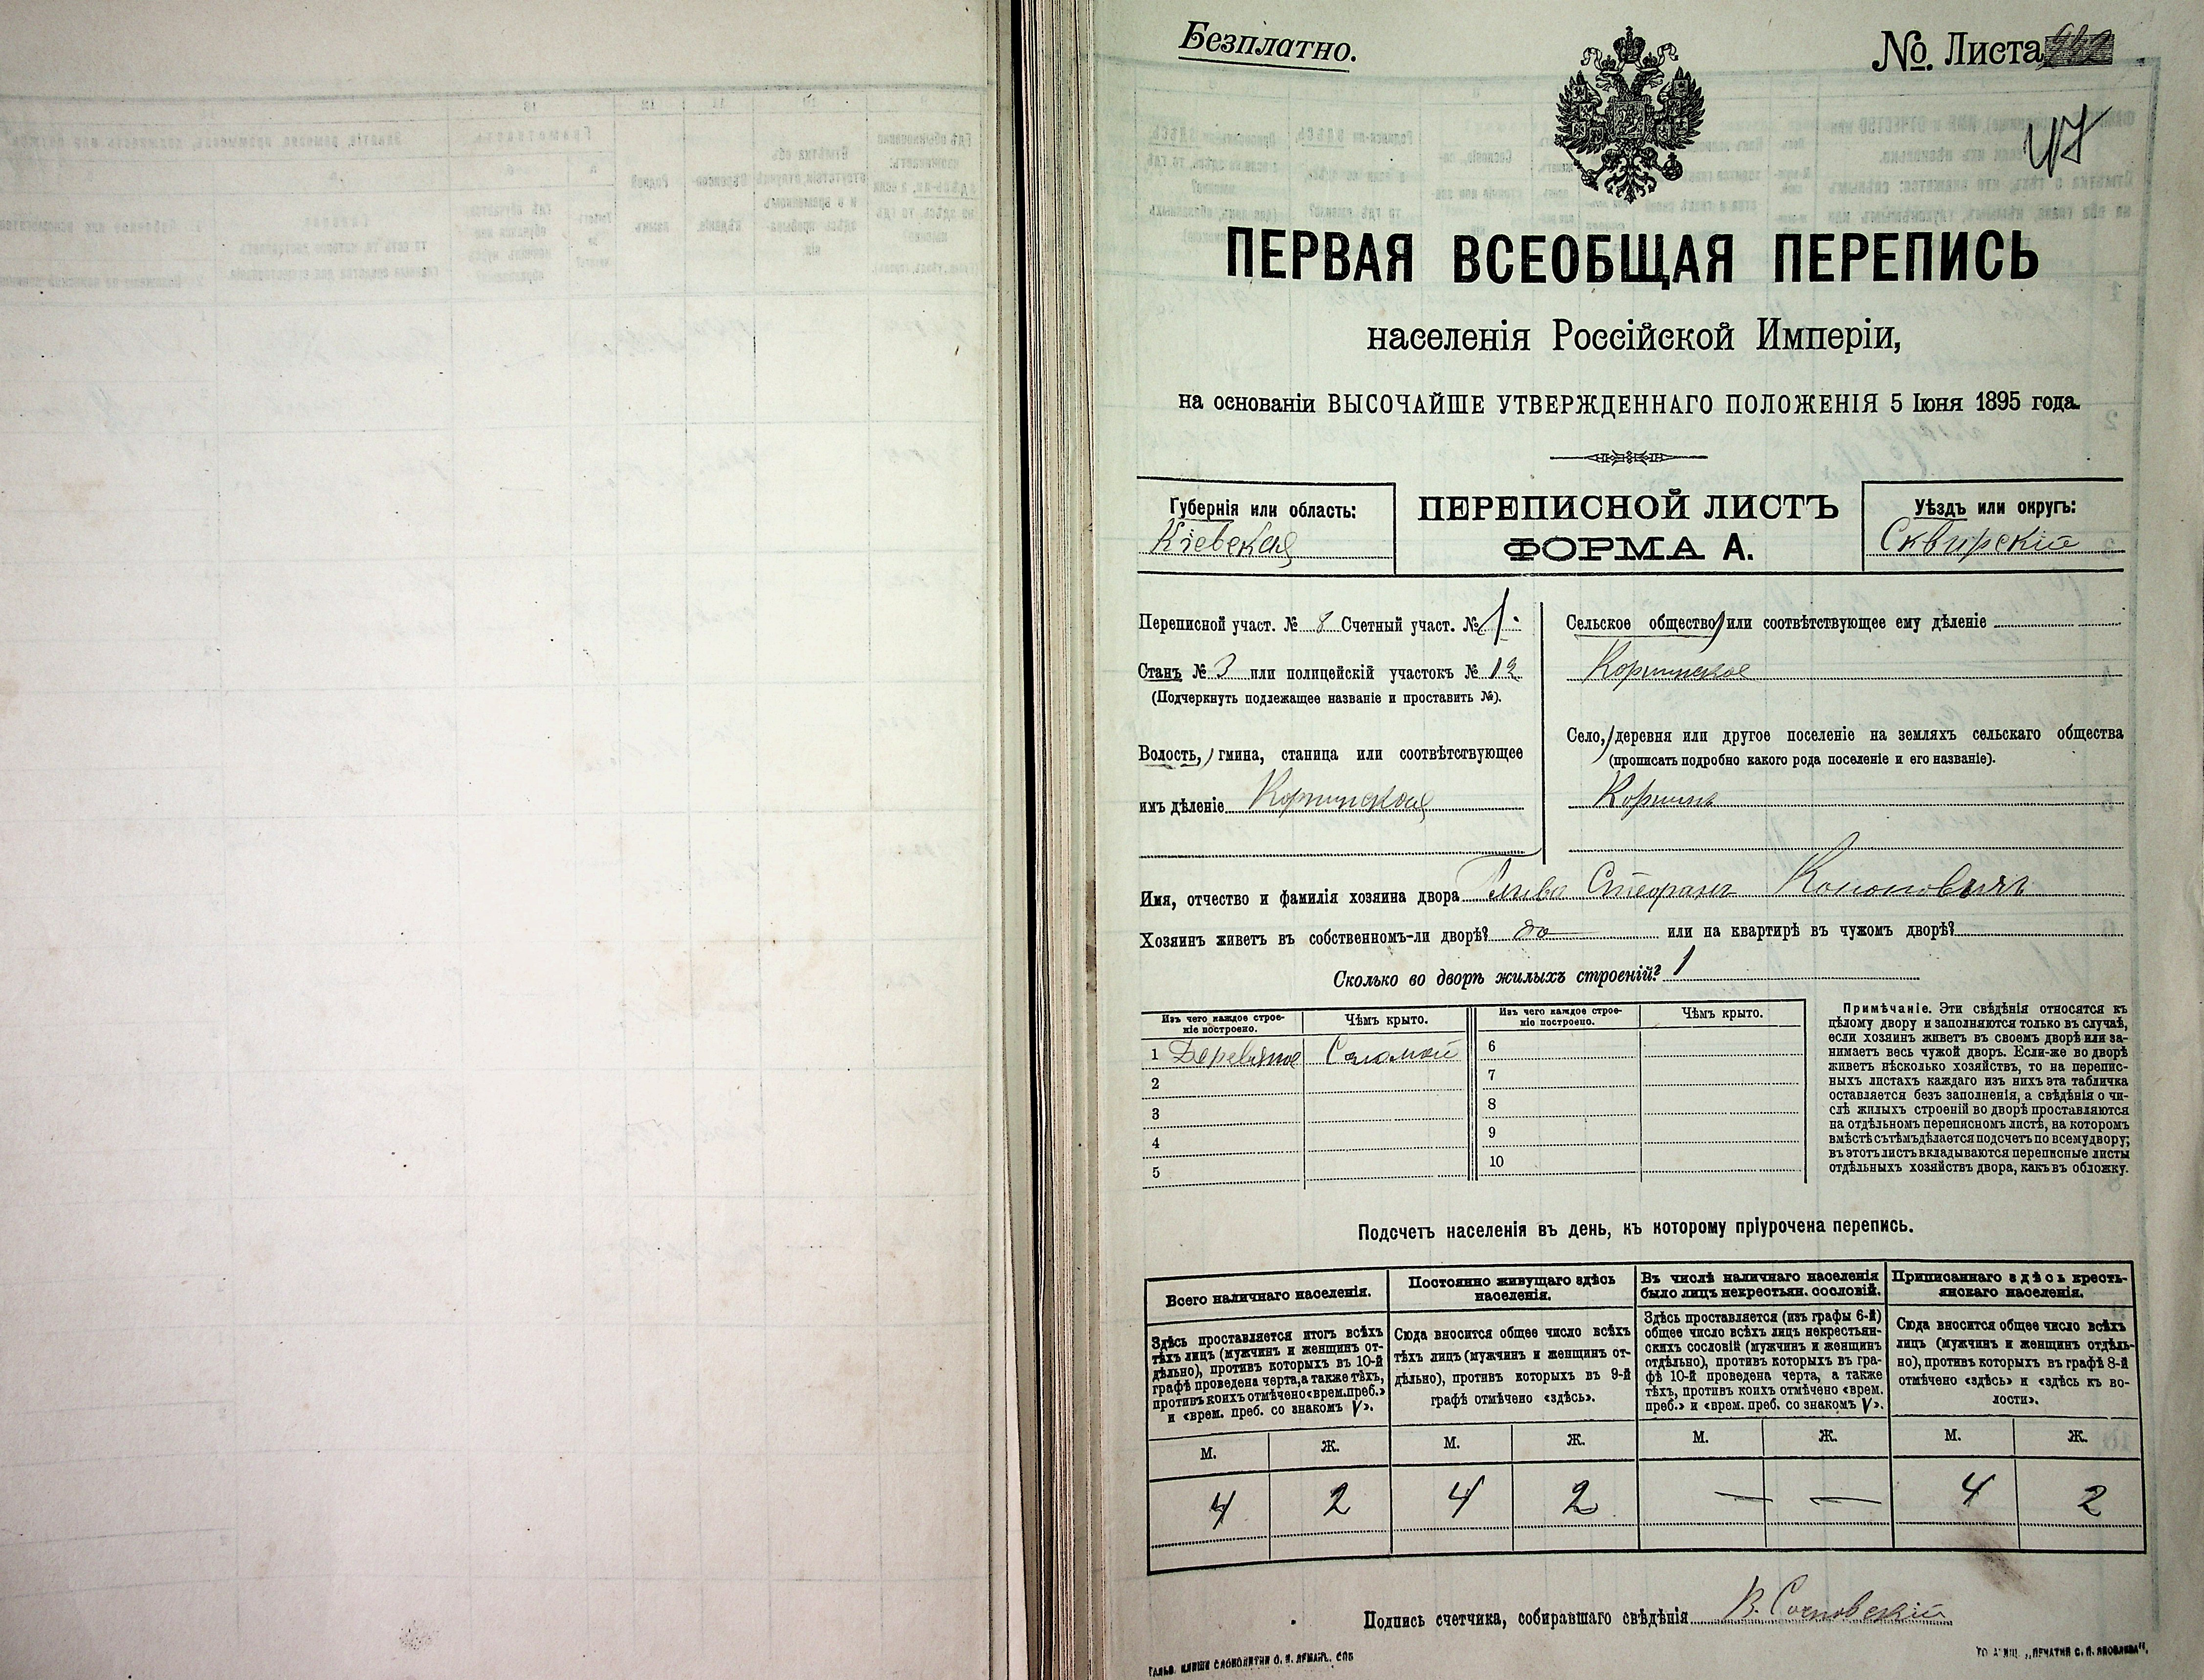 Безплатно.
№ Листа
47
ПЕРВАЯ ВСЕОБЩАЯ ПЕРЕПИСЬ
населенія Россійской Имперіи,
на основаніи ВЫСОЧАЙШЕ УТВЕРЖДЕННАГО ПОЛОЖЕНІЯ 5 Іюня 1895 года.
Губернія или область:
Кіевская
ПЕРЕПИСНОЙ ЛИСТЪ
ФОРМА А.
Уѣздъ или округъ:
Сквирскій
Переписной участ. № 8 Счетный участ. № 1
Станъ № 3 или полицейскій участокъ № 12
(Подчеркнуть подлежащее названіе и проставить №).
Волость, гмина, станица или соотвѣтствующее
имъ дѣленіе Корнинская
Сельское общество или соотвѣтствующее ему дѣленіе
Корнинское
Село, деревня или другое поселеніе на земляхъ сельскаго общества
(прописать подробно какого рода поселеніе и его названіе).
Корнинъ
Имя, отчество и фамилія хозяина двора Стефанъ Кононовичъ
Хозяинъ живетъ въ собственномъ-ли дворѣ? да или на квартирѣ въ чужомъ дворѣ?
Сколько во дворѣ жилыхъ строеній? 1
Изъ чего каждое строе-
ніе построено.
Чѣмъ крыто.
Изъ чего каждое строе-
ніе построено.
Чѣмъ крыто.
1 Деревяное Соломой
2
3
4
5
6
7
8
9
10
Примѣчаніе. Эти свѣдѣнія относятся къ
цѣлому двору и заполняются только въ случаѣ,
если хозяинъ живетъ въ своемъ дворѣ или за-
нимаетъ весь чужой дворъ. Если-же во дворѣ
живетъ нѣсколько хозяйствъ, то на перепис-
ныхъ листахъ каждаго изъ нихъ эта табличка
оставляется безъ заполненія, а свѣдѣнія о чи-
слѣ жилыхъ строеній во дворѣ проставляются
на отдѣльномъ переписномъ листѣ, на которомъ
вмѣстѣ съ тѣмъ дѣлается подсчетъ по всему двору;
въ этотъ листъ вкладываются переписные листы
отдѣльныхъ хозяйствъ двора, какъ въ обложку.
Подсчетъ населенія въ день, къ которому пріурочена перепись.
Всего наличнаго населенія.
Здѣсь проставляется итогъ всѣхъ
тѣхъ лицъ (мужчинъ и женщинъ от-
дѣльно), противъ которыхъ въ 10-й
графѣ проведена черта, а также тѣхъ,
противъ коихъ отмѣчено «врем. преб.»
и «врем. преб. со знакомъ V».
Постоянно живущаго здѣсь
населенія.
Сюда вносится общее число всѣхъ
тѣхъ лицъ (мужчинъ и женщинъ от-
дѣльно), противъ которыхъ въ 9-й
графѣ отмѣчено «здѣсь».
Въ числѣ наличнаго населенія
было лицъ некрестьян. сословій.
Здѣсь проставляется (изъ графы 6-й)
общее число всѣхъ лицъ некрестьян-
скихъ сословій (мужчинъ и женщинъ
отдѣльно), противъ которыхъ въ гра-
фѣ 10-й проведена черта, а также
тѣхъ, противъ коихъ отмѣчено «врем.
преб.» и «врем. преб. со знакомъ V».
Приписаннаго здѣсь кресть-
янскаго населенія.
Сюда вносится общее число всѣхъ
лицъ (мужчинъ и женщинъ отдѣль-
но), противъ которыхъ въ графѣ 8-й
отмѣчено «здѣсь» и «здѣсь къ во-
лости».
М. Ж. М. Ж. М. Ж. М. Ж.
4 2 4 2 — — 4 2
Подпись счетчика, собиравшаго свѣдѣнія В. Сосновскій